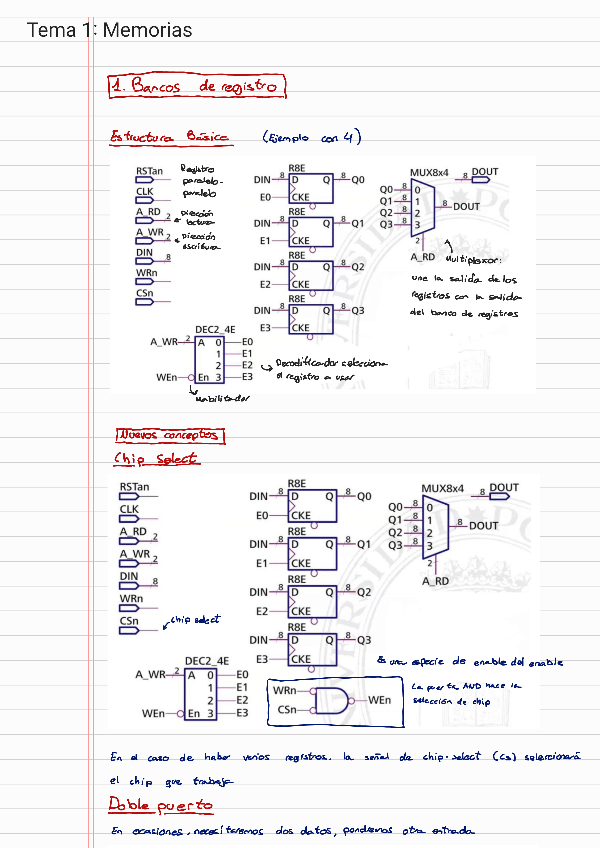 Tema 1: Memorias
1. Bancos de registro
Estructura Básica (Ejemplo con 4)
RSTan
CLK
A_RD 2
A_WR 2
DIN 8
WRn
CSn
Registro
paralelo-
paralelo
Dirección
lectura
Dirección
escritura
R8E
DIN 8 D Q 8 Q0
E0 CKE
R8E
DIN 8 D Q 8 Q1
E1 CKE
R8E
DIN 8 D Q 8 Q2
E2 CKE
R8E
DIN 8 D Q 8 Q3
E3 CKE
MUX8x4 8 DOUT
Q0 8 0
Q1 8 1
Q2 8 2
Q3 8 3
8 DOUT
2
A_RD
Multiplexor:
une la salida de los
registros con la salida
del banco de registros
DEC2_4E
A_WR 2 A 0 E0
1 E1
2 E2
WEn En 3 E3
Decodificador selecciona
el registro a usar
Habilitador
Nuevos conceptos
Chip Select
RSTan
CLK
A_RD 2
A_WR 2
DIN 8
WRn
CSn
chip select
R8E
DIN 8 D Q 8 Q0
E0 CKE
R8E
DIN 8 D Q 8 Q1
E1 CKE
R8E
DIN 8 D Q 8 Q2
E2 CKE
R8E
DIN 8 D Q 8 Q3
E3 CKE
MUX8x4 8 DOUT
Q0 8 0
Q1 8 1
Q2 8 2
Q3 8 3
8 DOUT
2
A_RD
DEC2_4E
A_WR 2 A 0 E0
1 E1
2 E2
WEn En 3 E3
WRn
CSn
WEn
Es una especie de enable del enable
La puerta AND hace la
selección de chip
En el caso de haber varios registros, la señal de chip-select (cs) seleccionará
el chip que trabaje
Doble puerto
En ocasiones, necesitaremos dos datos, pondremos otra entrada